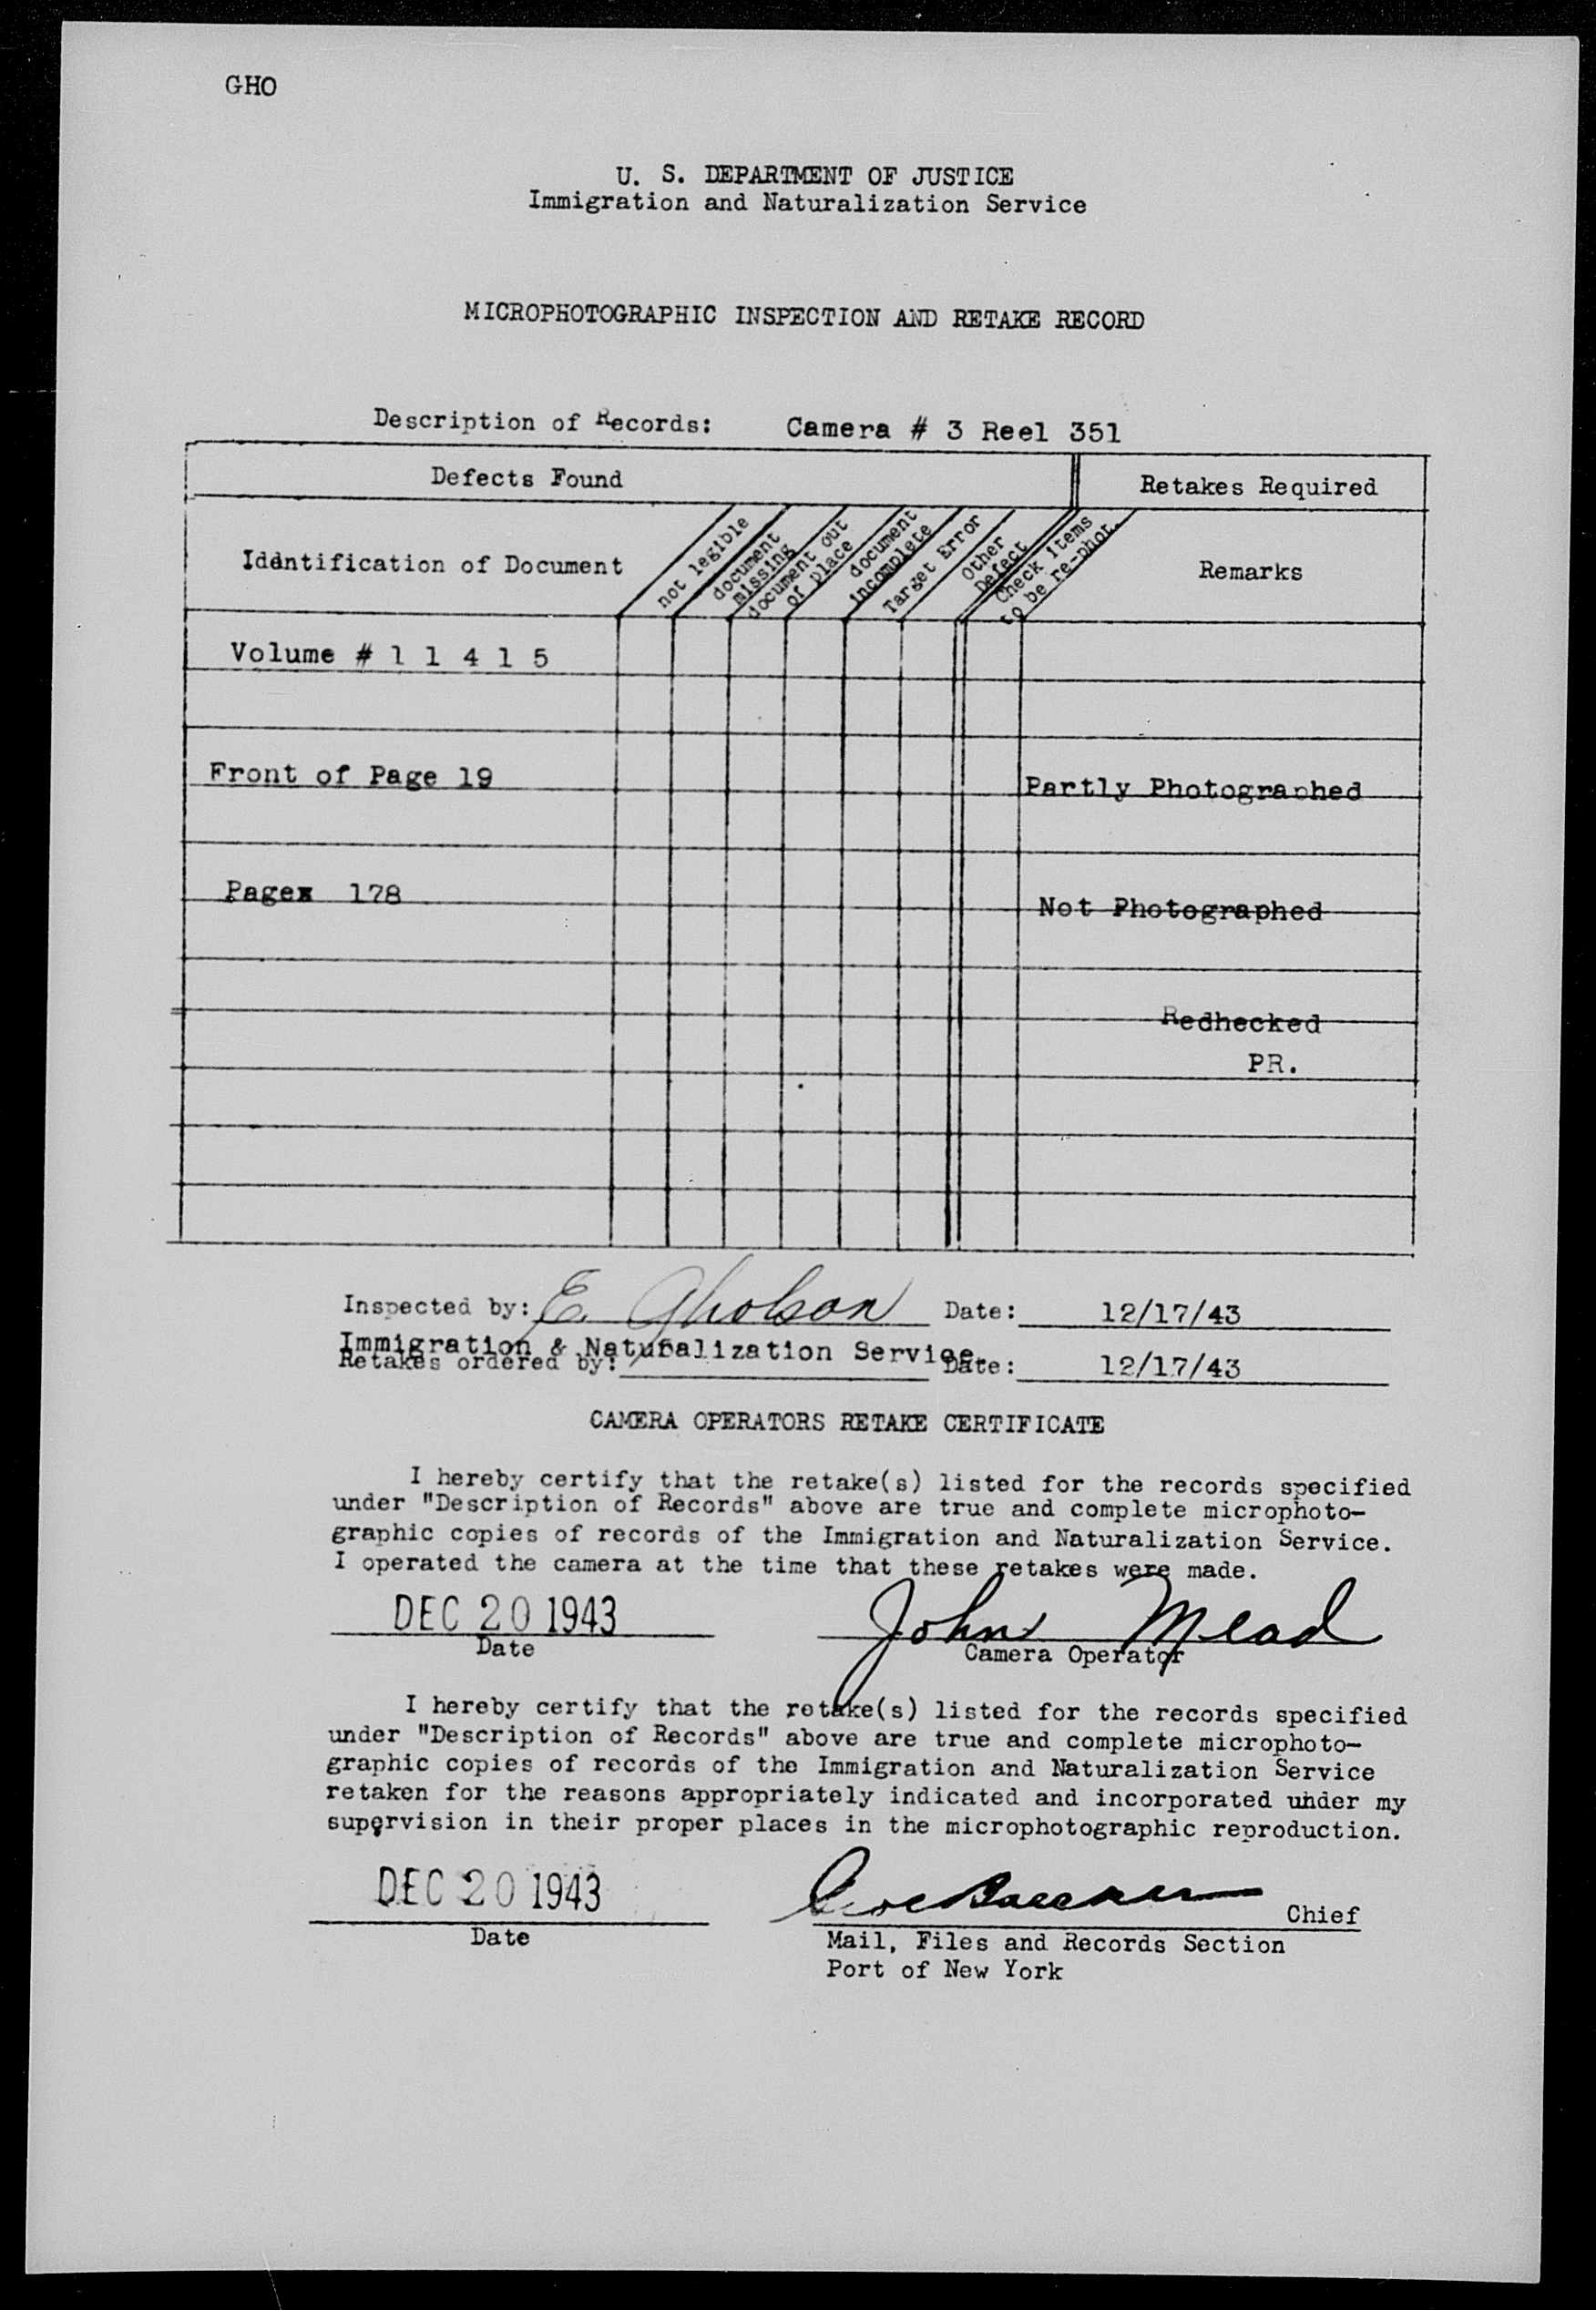 GHO
U. S. DEPARTMENT OF JUSTICE
Immigration and Naturalization Service
MICROPHOTOGRAPHIC INSPECTION AND RETAKE RECORD
Description of Records: Camera # 3 Reel 351
Defects Found
Retakes Required
Identification of Document
not legible
document
missing
document out
of place
document
incomplete
Target Error
Other
Defect
Check items
to be re-phot.
Remarks
Volume # 1 1 4 1 5
Front of Page 19 Partly Photographed
Page 178 Not Photographed
Redhecked
PR.
Inspected by: E. Gholson Date: 12/17/43
Immigration & Naturalization Service
Retakes ordered by: Date: 12/17/43
CAMERA OPERATORS RETAKE CERTIFICATE
I hereby certify that the retake(s) listed for the records specified
under "Description of Records" above are true and complete microphoto-
graphic copies of records of the Immigration and Naturalization Service.
I operated the camera at the time that these retakes were made.
DEC 20 1943 John Mead
Date Camera Operator
I hereby certify that the retake(s) listed for the records specified
under "Description of Records" above are true and complete microphoto-
graphic copies of records of the Immigration and Naturalization Service
retaken for the reasons appropriately indicated and incorporated under my
supervision in their proper places in the microphotographic reproduction.
DEC 20 1943 Chief
Date Mail, Files and Records Section
Port of New York